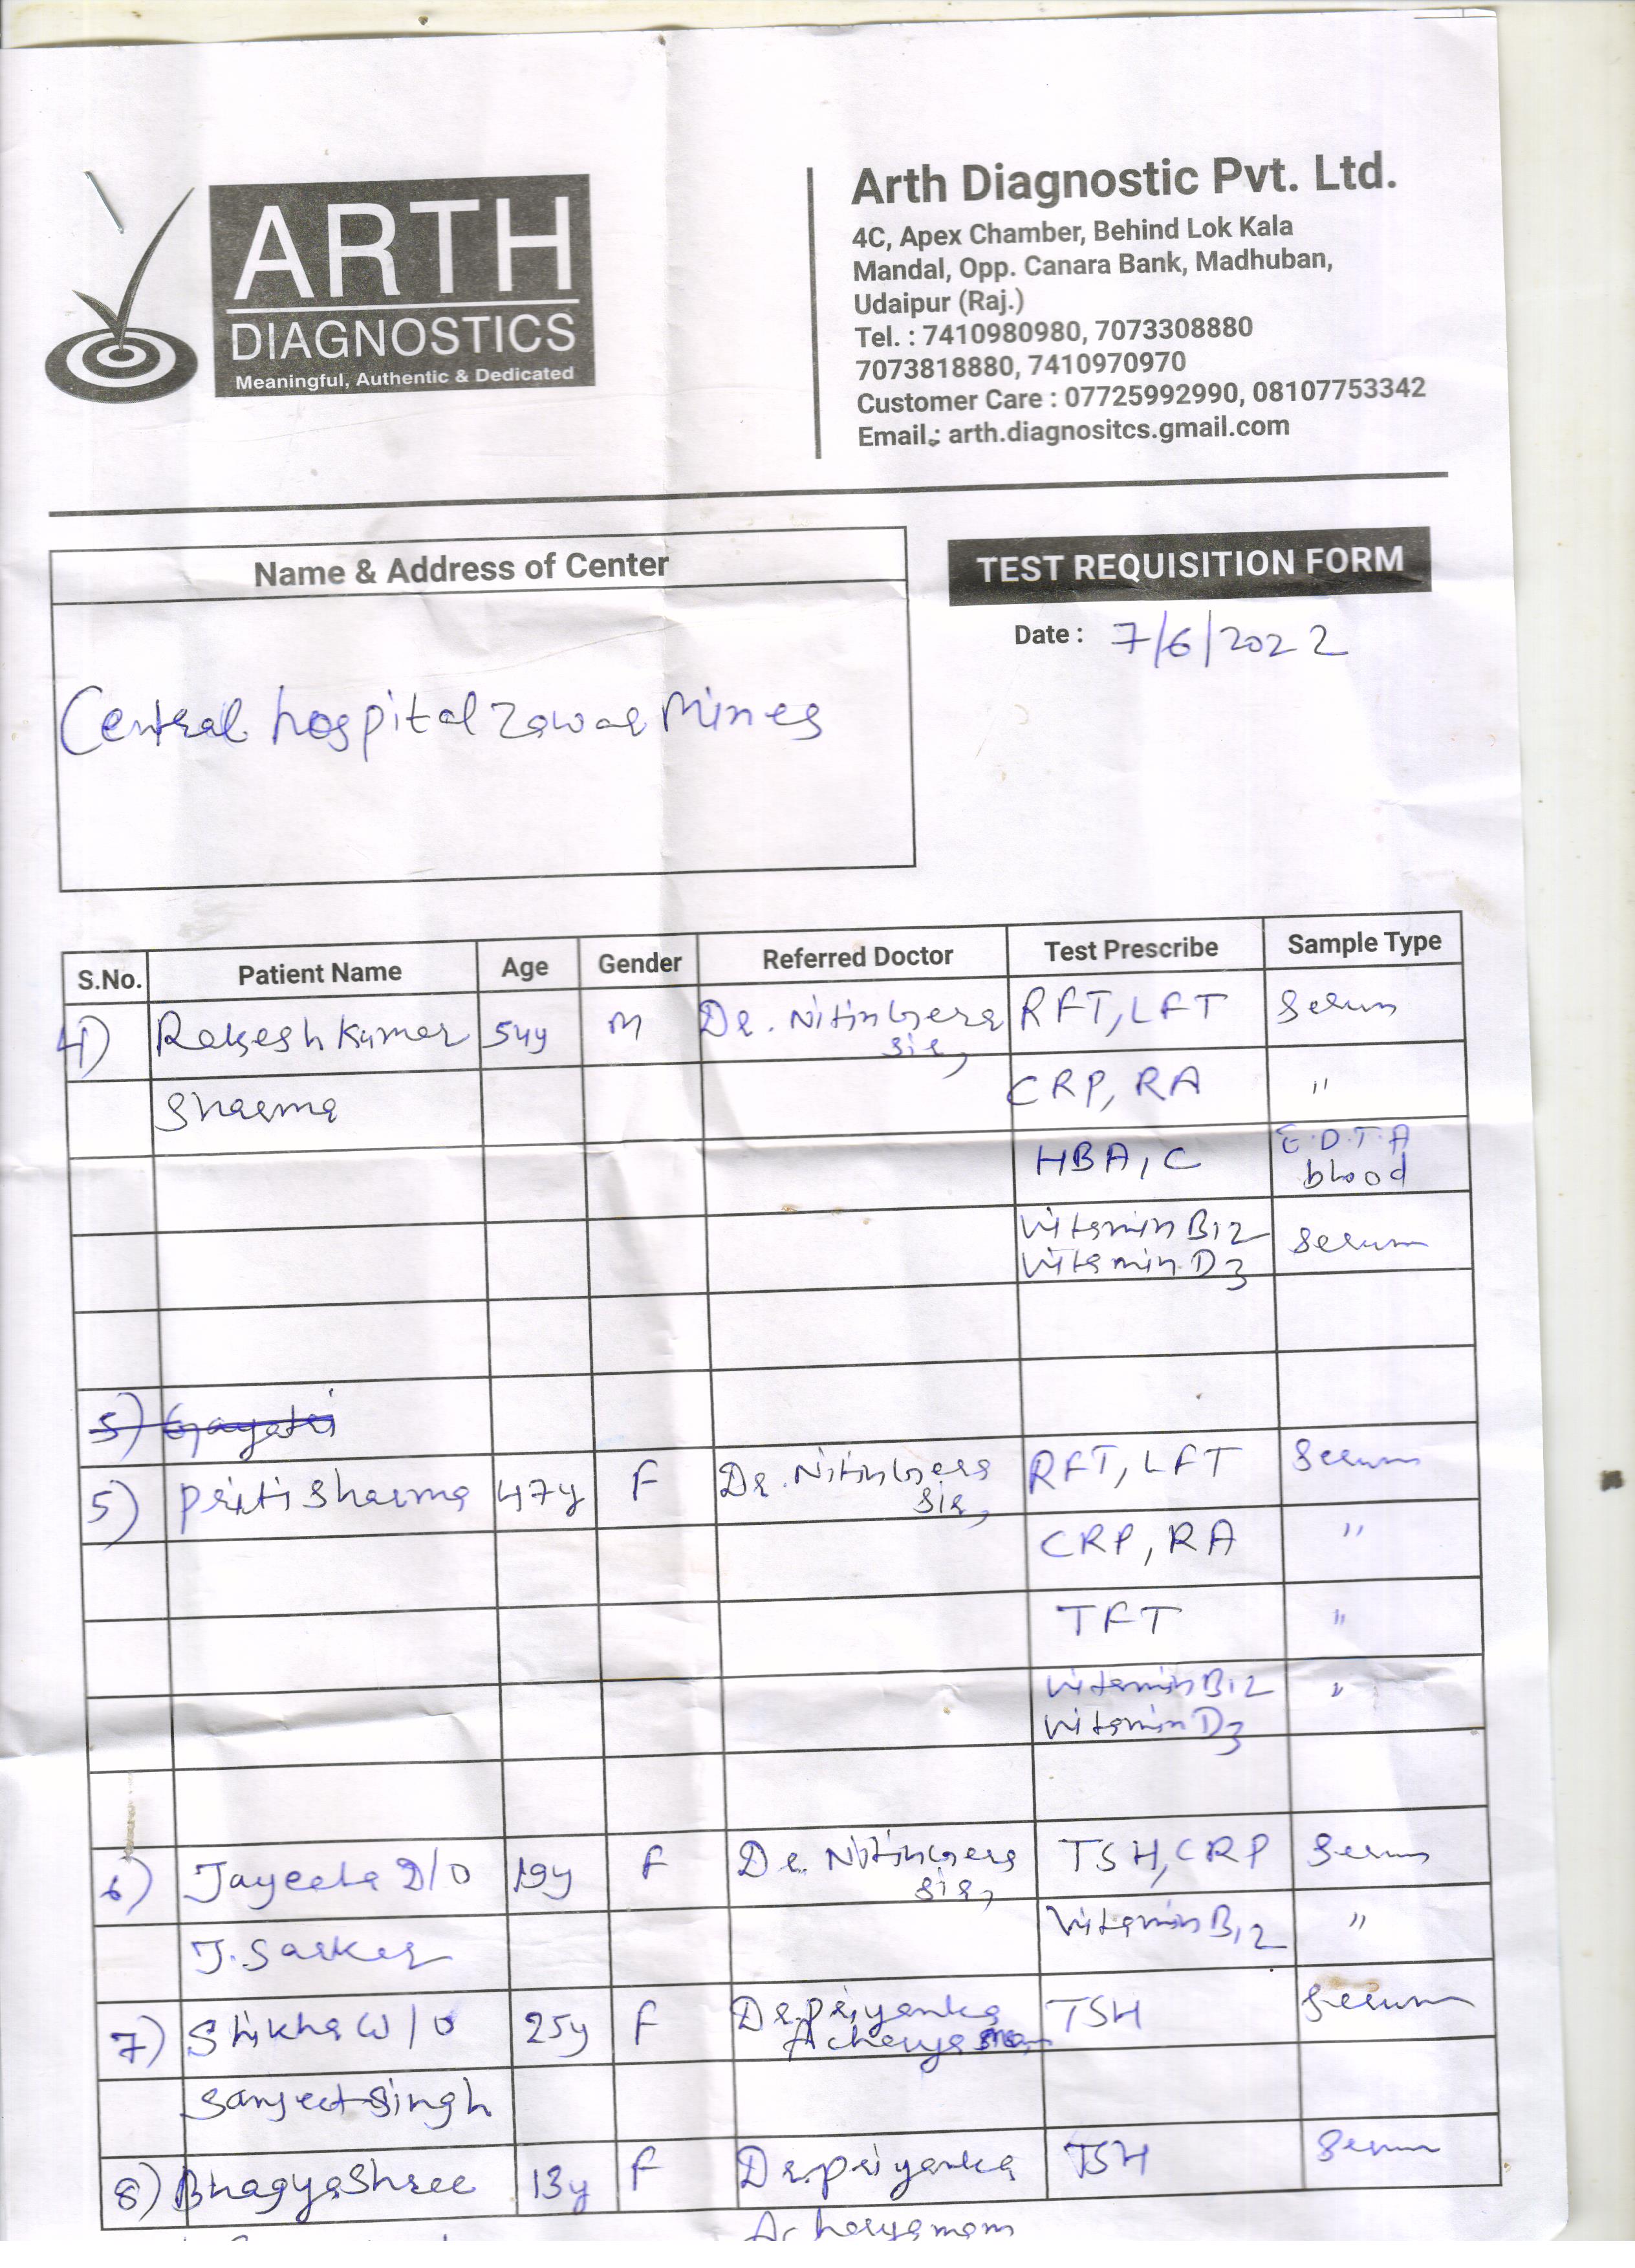 ARTH
DIAGNOSTICS
Meaningful, Authentic & Dedicated
Arth Diagnostic Pvt. Ltd.
4C, Apex Chamber, Behind Lok Kala
Mandal, Opp. Canara Bank, Madhuban,
Udaipur (Raj.)
Tel. : 7410980980, 7073308880
7073818880, 7410970970
Customer Care : 07725992990, 08107753342
Email : arth.diagnositcs.gmail.com
Name & Address of Center
TEST REQUISITION FORM
Date : 7/6/2022
Central hospital Zawar Mines
S.No. Patient Name Age Gender Referred Doctor Test Prescribe Sample Type
4) Rakesh Kumar 54y M Dr. Nitin sir, RFT, LFT Serum
Sharma CRP, RA "
HBA1C E.D.T.A blood
Vitamin B12 Serum
Vitamin D3
5) Gayatri
5) Priti Sharma 47y F Dr. Nitin sir, RFT, LFT Serum
CRP, RA "
TFT "
Vitamin B12 "
Vitamin D3
6) Jayeeta D/O 19y F Dr. Nitin sir, TSH, CRP Serum
J. Sarkar Vitamin B12 "
7) Shikha W/O 25y F Dr. Priyanka Acharya TSH Serum
Sanjeet Singh
8) Bhagyashree 13y F Dr. Priyanka TSH Serum
Acharya mam